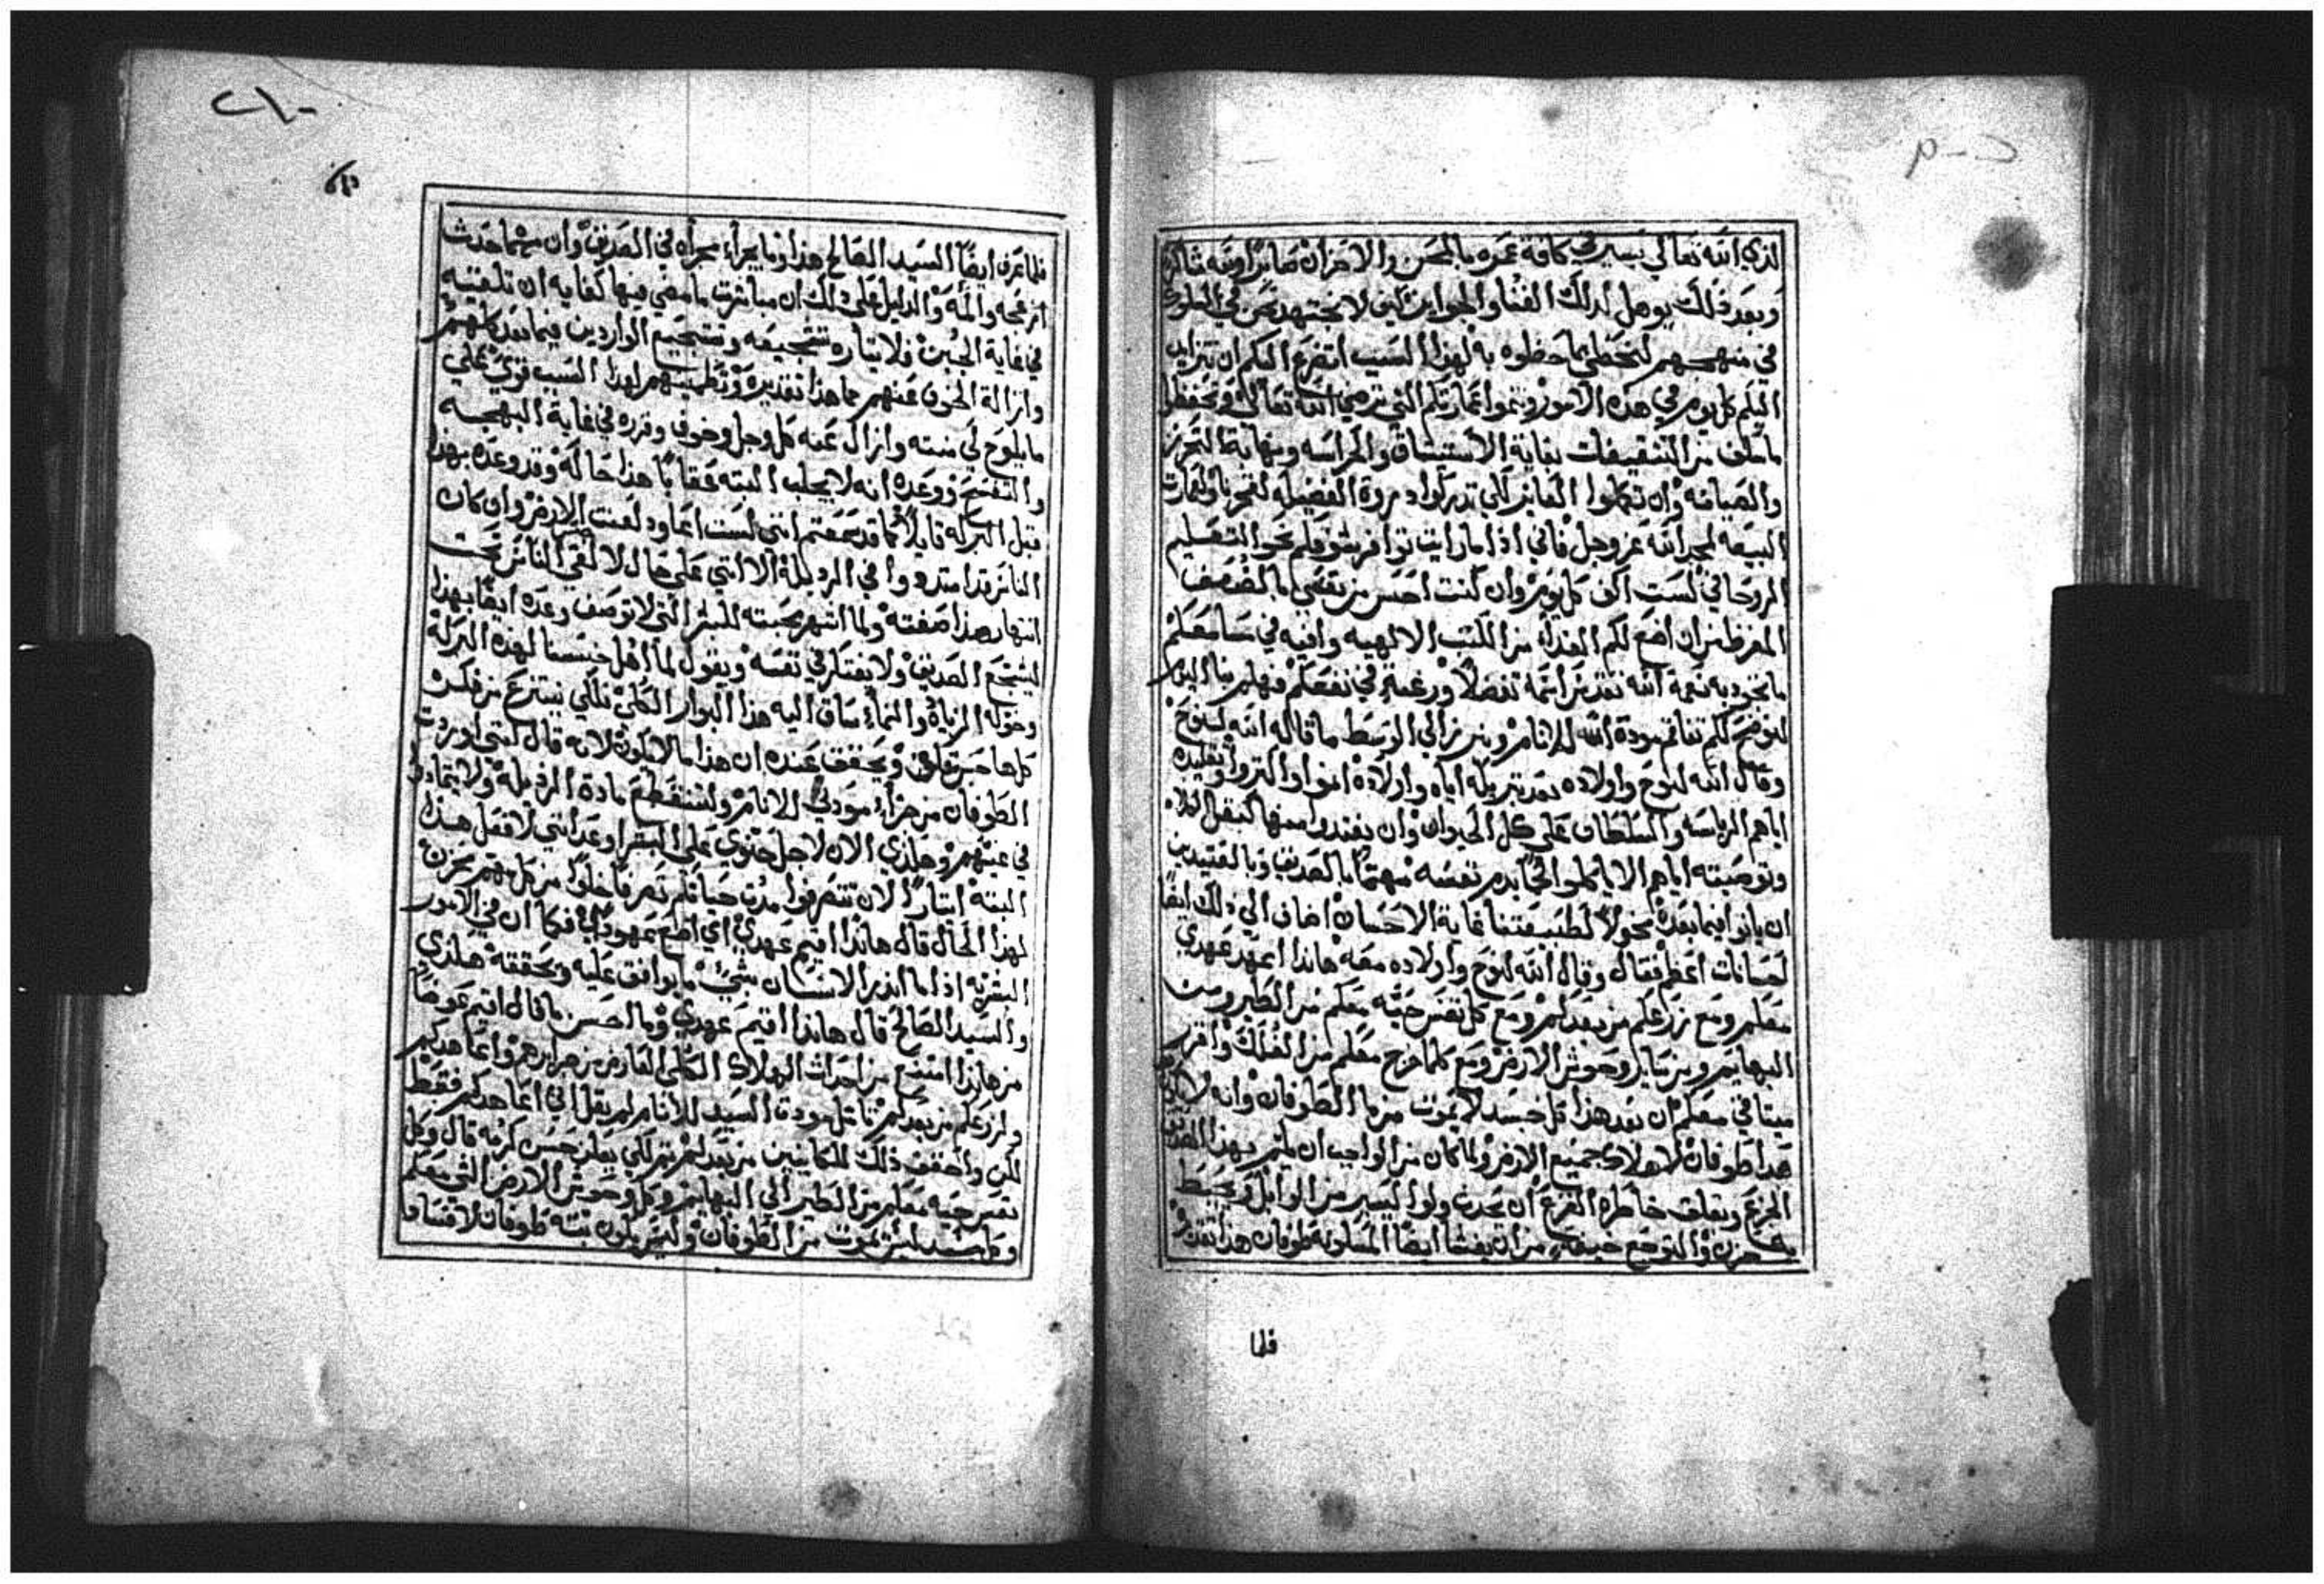 الذي الله تعالى يسير في كافة عمره بالمحن والاحزان صابرا وانه شاكر
وبعد ذلك يوهل لذلك الغنا والجوايز كيف لا نجتهد نحن في السلوك
في منهجهم لنحظى بما حظوه به لهذا السبب اتضرع اليكم ان تتزايد
اليكم كل يوم في هذه الامور وتنموا عمارتكم التي ترضي الله تعالى وتحفظوا
ما سلف من التثقيفات بغاية الاستيثاق والحراسه ونهاية التحرز
والصيانه وان تكملوا الفايز لكي تدركوا ذروة الفضيله لفخرنا ولعمارت
البيعه لمجد الله عز وجل فاني اذا ما رايت توافر شوقكم نحو التعليم
الروحاني لست اكف كل يوم وان كنت احس من نفسي بالضعف
المفرط من ان اضع لكم الغذاء من الكتب الالهيه وافيه في مسامعكم
ما تجود به نعمة الله بعد من اسمه تفضلا ورغبة في نفعكم فهلم بنا اليوم
لنوضح لكم تفاقم مودة الله للانام ونبرز الى الوسط ما قاله الله لنوح
وقال الله لنوح واولاده بعد تبريكه اياه واولاده انموا واكثروا وتقليده
اياهم الرياسه والسلطان على كل الحيوان وان يغتذوا منها كبقل الكلاء
وتوصيته اياهم الا ياكلوا لحما بدم نفسه مهتما بالصديق وبالعتيدين
ان ياتوا فيما بعد مخولا لطبيعتنا غاية الاحسان اضاف الى ذلك ايضا
احسانات اعظم فقال وقال الله لنوح واولاده معه هانذا اعهد عهدي
معكم ومع زرعكم من بعدكم ومع كل نفس حيه معكم من الطير ومن
البهايم ومن ساير وحوش الارض ومع كلما خرج معكم من الفلك واقرر
ميثاقي معكم ان بعد هذا كل جسد لا يموت من ما الطوفان وانه لا يكون
بعد طوفان لاهلاك جميع الارض ولما كان من الواجب ان يلم بهذا الصديق
الجزع ويقلق خاطره الفزع ان يحدث ولو اليسير من الوابل ويحيط
به حزن والتوجع خيفة من ان يغشا ايضا المسكونه طوفان هذا نعته
فلما
٢١٠
فلما عرف ايضا السيد الصالح هذا وما يجراء مجراه في الصديق وان مهما حدث
ازعجه والمه والدليل على ذلك ان مباشرت ما مضى فيها كفايه ان تلقنيه
في غاية الجبن فلا يثاره تشجيعه وتشجيع الواردين فيما بعد كلهم
وازالة الخوف عنهم بما هذا تقديره وتطمينهم لهذا السبب قوي علي
ما يلوح لي منيته وازال عنه كل وجل وخوف وقرره في غاية البهجه
والتفسح ووعده انه لا يجلب البته عقابا هذا حاله وقد وعده بهذا
قبل البركه قايلا كما قد سمعتم انني لست اعاود لعنت الارض وان كان
الناس قد امتدوا في الرديله الا انني على حال لا القي الناس تحت
انتهار هذا صفته ولما اشهر محبته للبشر التي لا توصف وعده ايضا بهذا
ليشجع الصديق ولا يفتكر في نفسه ويقول لما اهل جنسنا لهذه البركه
وخوله الزياده والنماء ساق اليه هذا البوار الكلي فلكي ينتزع من فكره
كلها حس قلق ويحقق عنده ان هذا ما لا يكون لانه قال كنتي اوردت
الطوفان من هزاء مودتي للانام ولننقطع مادة الرذيله ولا يتمادوا
في غيهم وهكذي الان لاجل حنوي على البشر اوعد انني لا افعل هذا
البته ايثارا لان تتصرفوا مدت حياتكم تصرفا خلوا من كل مهم يحزن
لهذا الحال قال هانذا اقيم عهدي اي اضع عهودا فكما ان في الامور
البشريه اذا ما انذر الانسان بشي ما يوافق عليه ويحققه هكذي
والسيد الصالح قال هانذا اقيم عهدي وما احسن ما قال اقيم عوضا
من هانذا امتنع من احداث الهلاك الكلي العارض من جرايرهم واعاهدكم
ولزرعكم من بعدكم تامل مودة السيد للانام لم يقل اني اعاهدكم فقط
لكن واحقق ذلك للكاينين من بعدكم ثم لكي يعلن حسن كرمه قال وكل
نفس حيه معكم من الطير الى البهايم وكل وحوش الارض التي معكم
وكل جسد ليس يموت من الطوفان وليس يكون بته طوفان لافساد ما